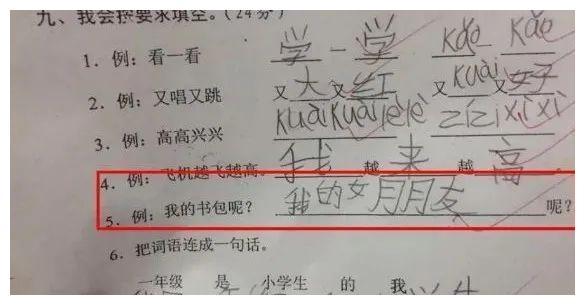 九、我会按要求填空。(24分)
1. 例：看一看 学一学 kǎo kǎo
2. 例：又唱又跳 又大又红 又kuài又好
3. 例：高高兴兴 kuàikuàilèlè zǐzǐxìxì
4. 例：飞机越飞越高。 我越来越高
5. 例：我的书包呢？ 我的女朋友呢？
6. 把词语连成一句话。
一年级 是 小学生 的 我